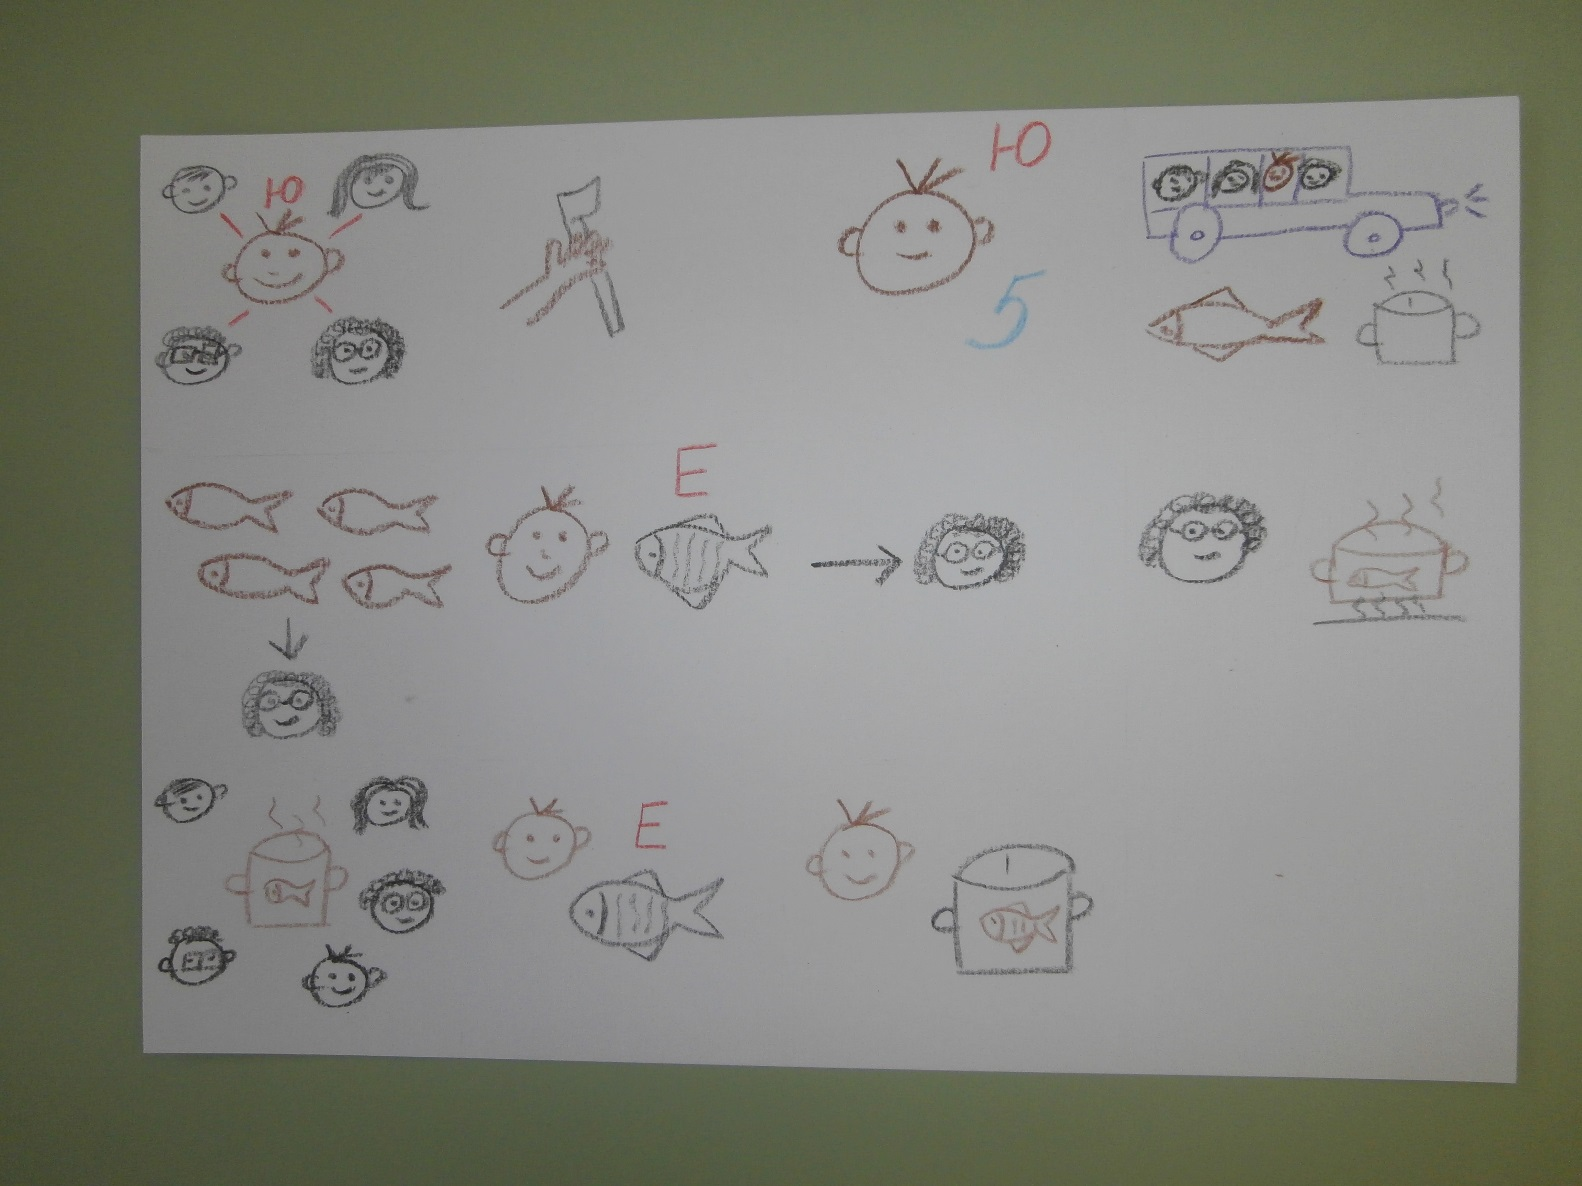 Ю
Ю
5
Е
Е